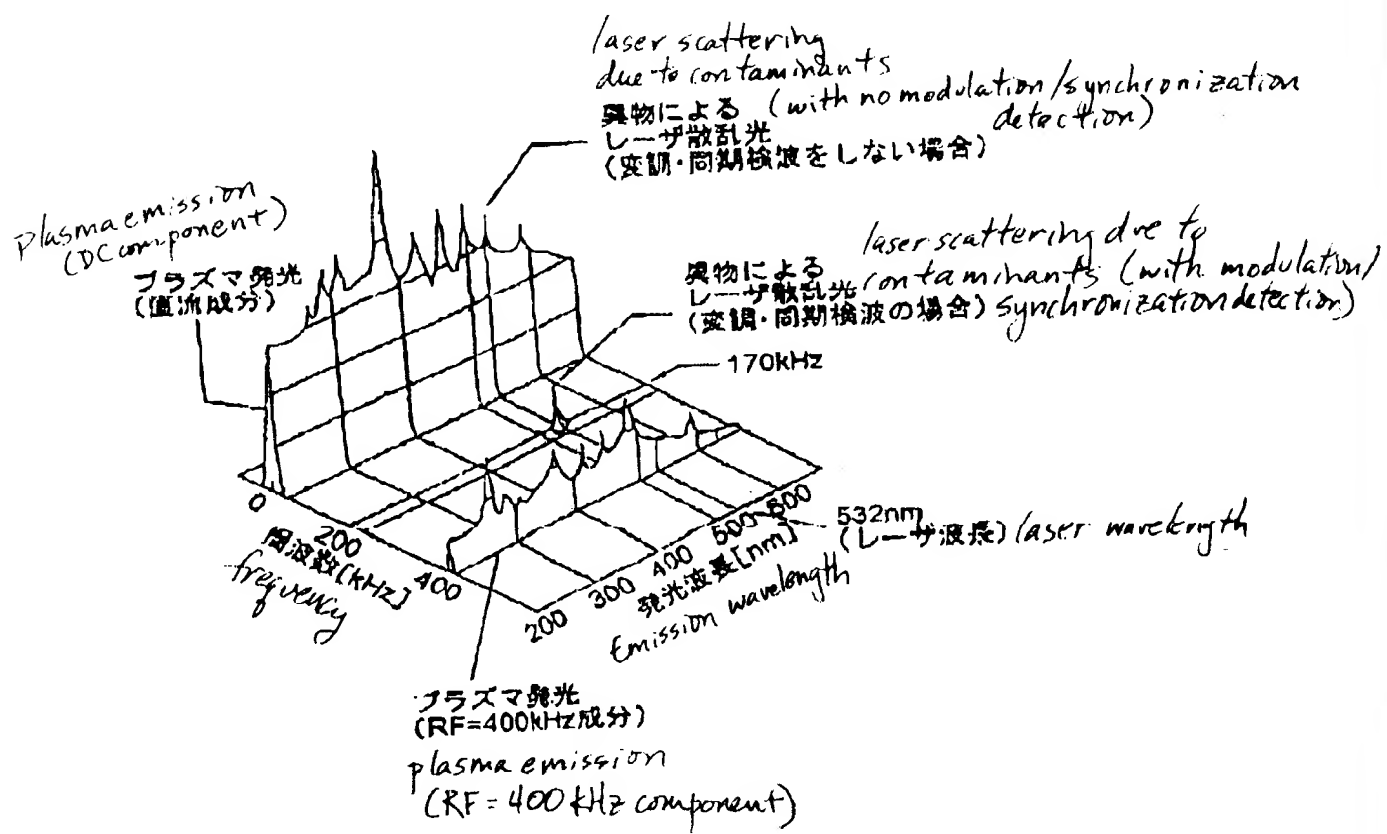 laser scattering
due to contaminants
(with no modulation/synchronization
detection)
異物による
レーザ散乱光
(変調・同期検波をしない場合)
plasma emission
(DC component)
プラズマ発光
(直流成分)
laser scattering due to
contaminants (with modulation/
synchronization detection)
異物による
レーザ散乱光
(変調・同期検波の場合)
170kHz
0
200
400
周波数[kHz]
frequency
200
300
400
500
600
発光波長[nm]
Emission wavelength
532nm
(レーザ波長) laser wavelength
プラズマ発光
(RF=400kHz成分)
plasma emission
(RF=400 kHz component)